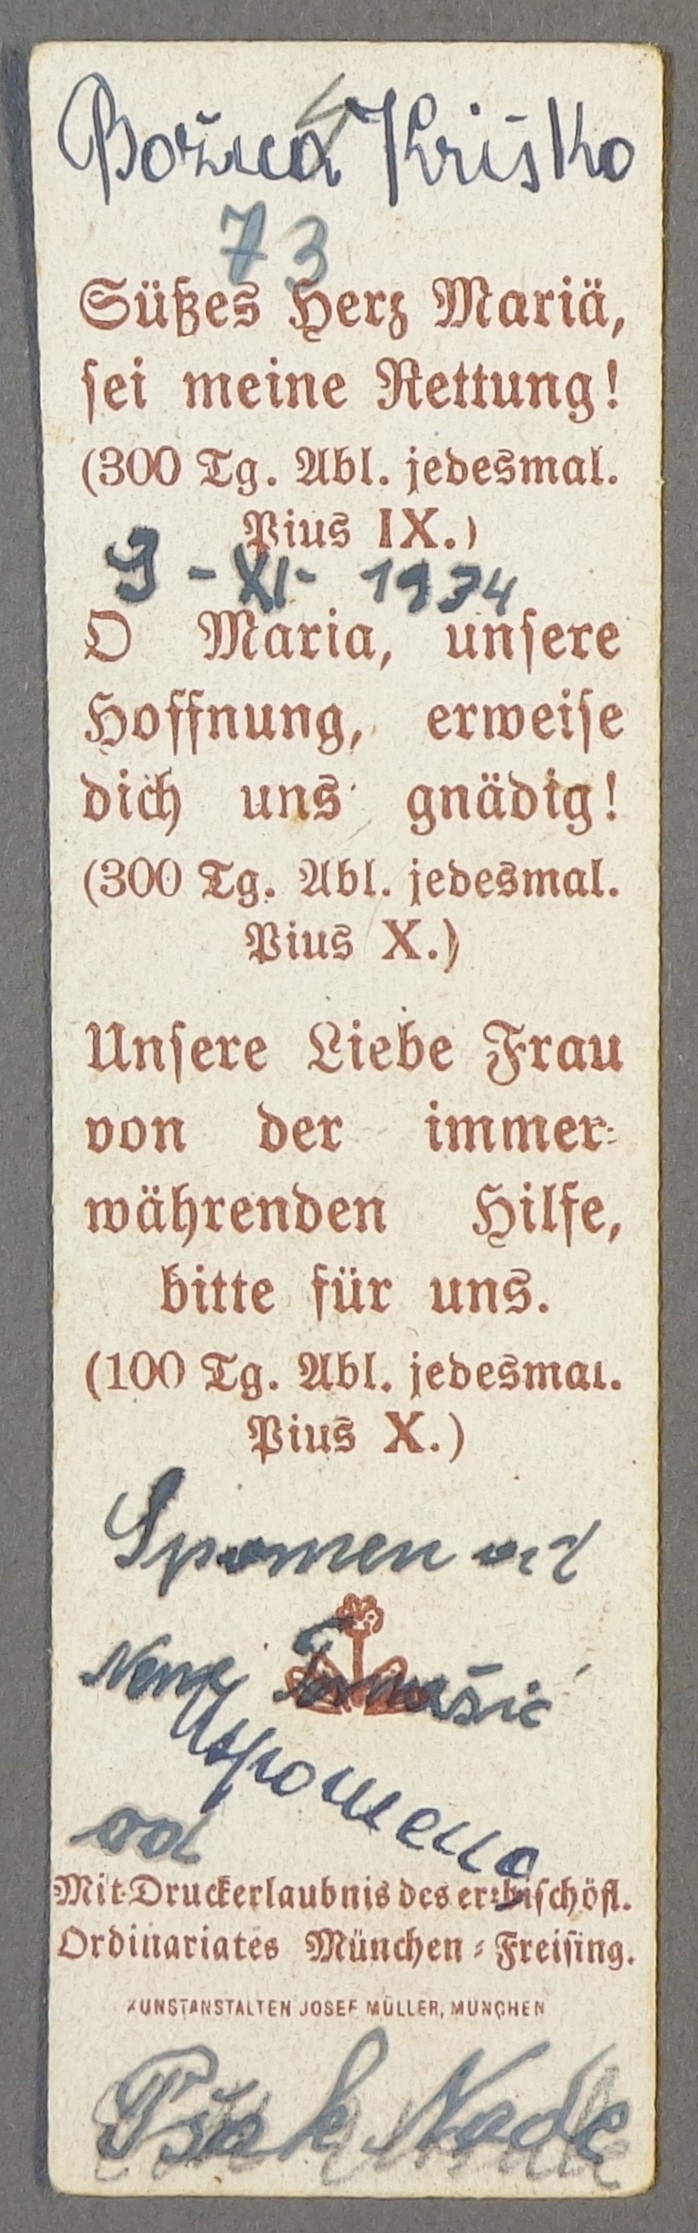 Božica Kriško
73
Süßes Herz Mariä,
sei meine Rettung!
(300 Tg. Abl. jedesmal.
Pius IX.)
9 - XI - 1934
O Maria, unsere
Hoffnung, erweise
dich uns gnädig!
(300 Tg. Abl. jedesmal.
Pius X.)
Unsere Liebe Frau
von der immer-
währenden Hilfe,
bitte für uns.
(100 Tg. Abl. jedesmal.
Pius X.)
Spomen od
Tomašić
Uspomena
od
Mit Druckerlaubnis des erzbischöfl.
Ordinariates München-Freising.
KUNSTANSTALTEN JOSEF MÜLLER, MÜNCHEN
Nade